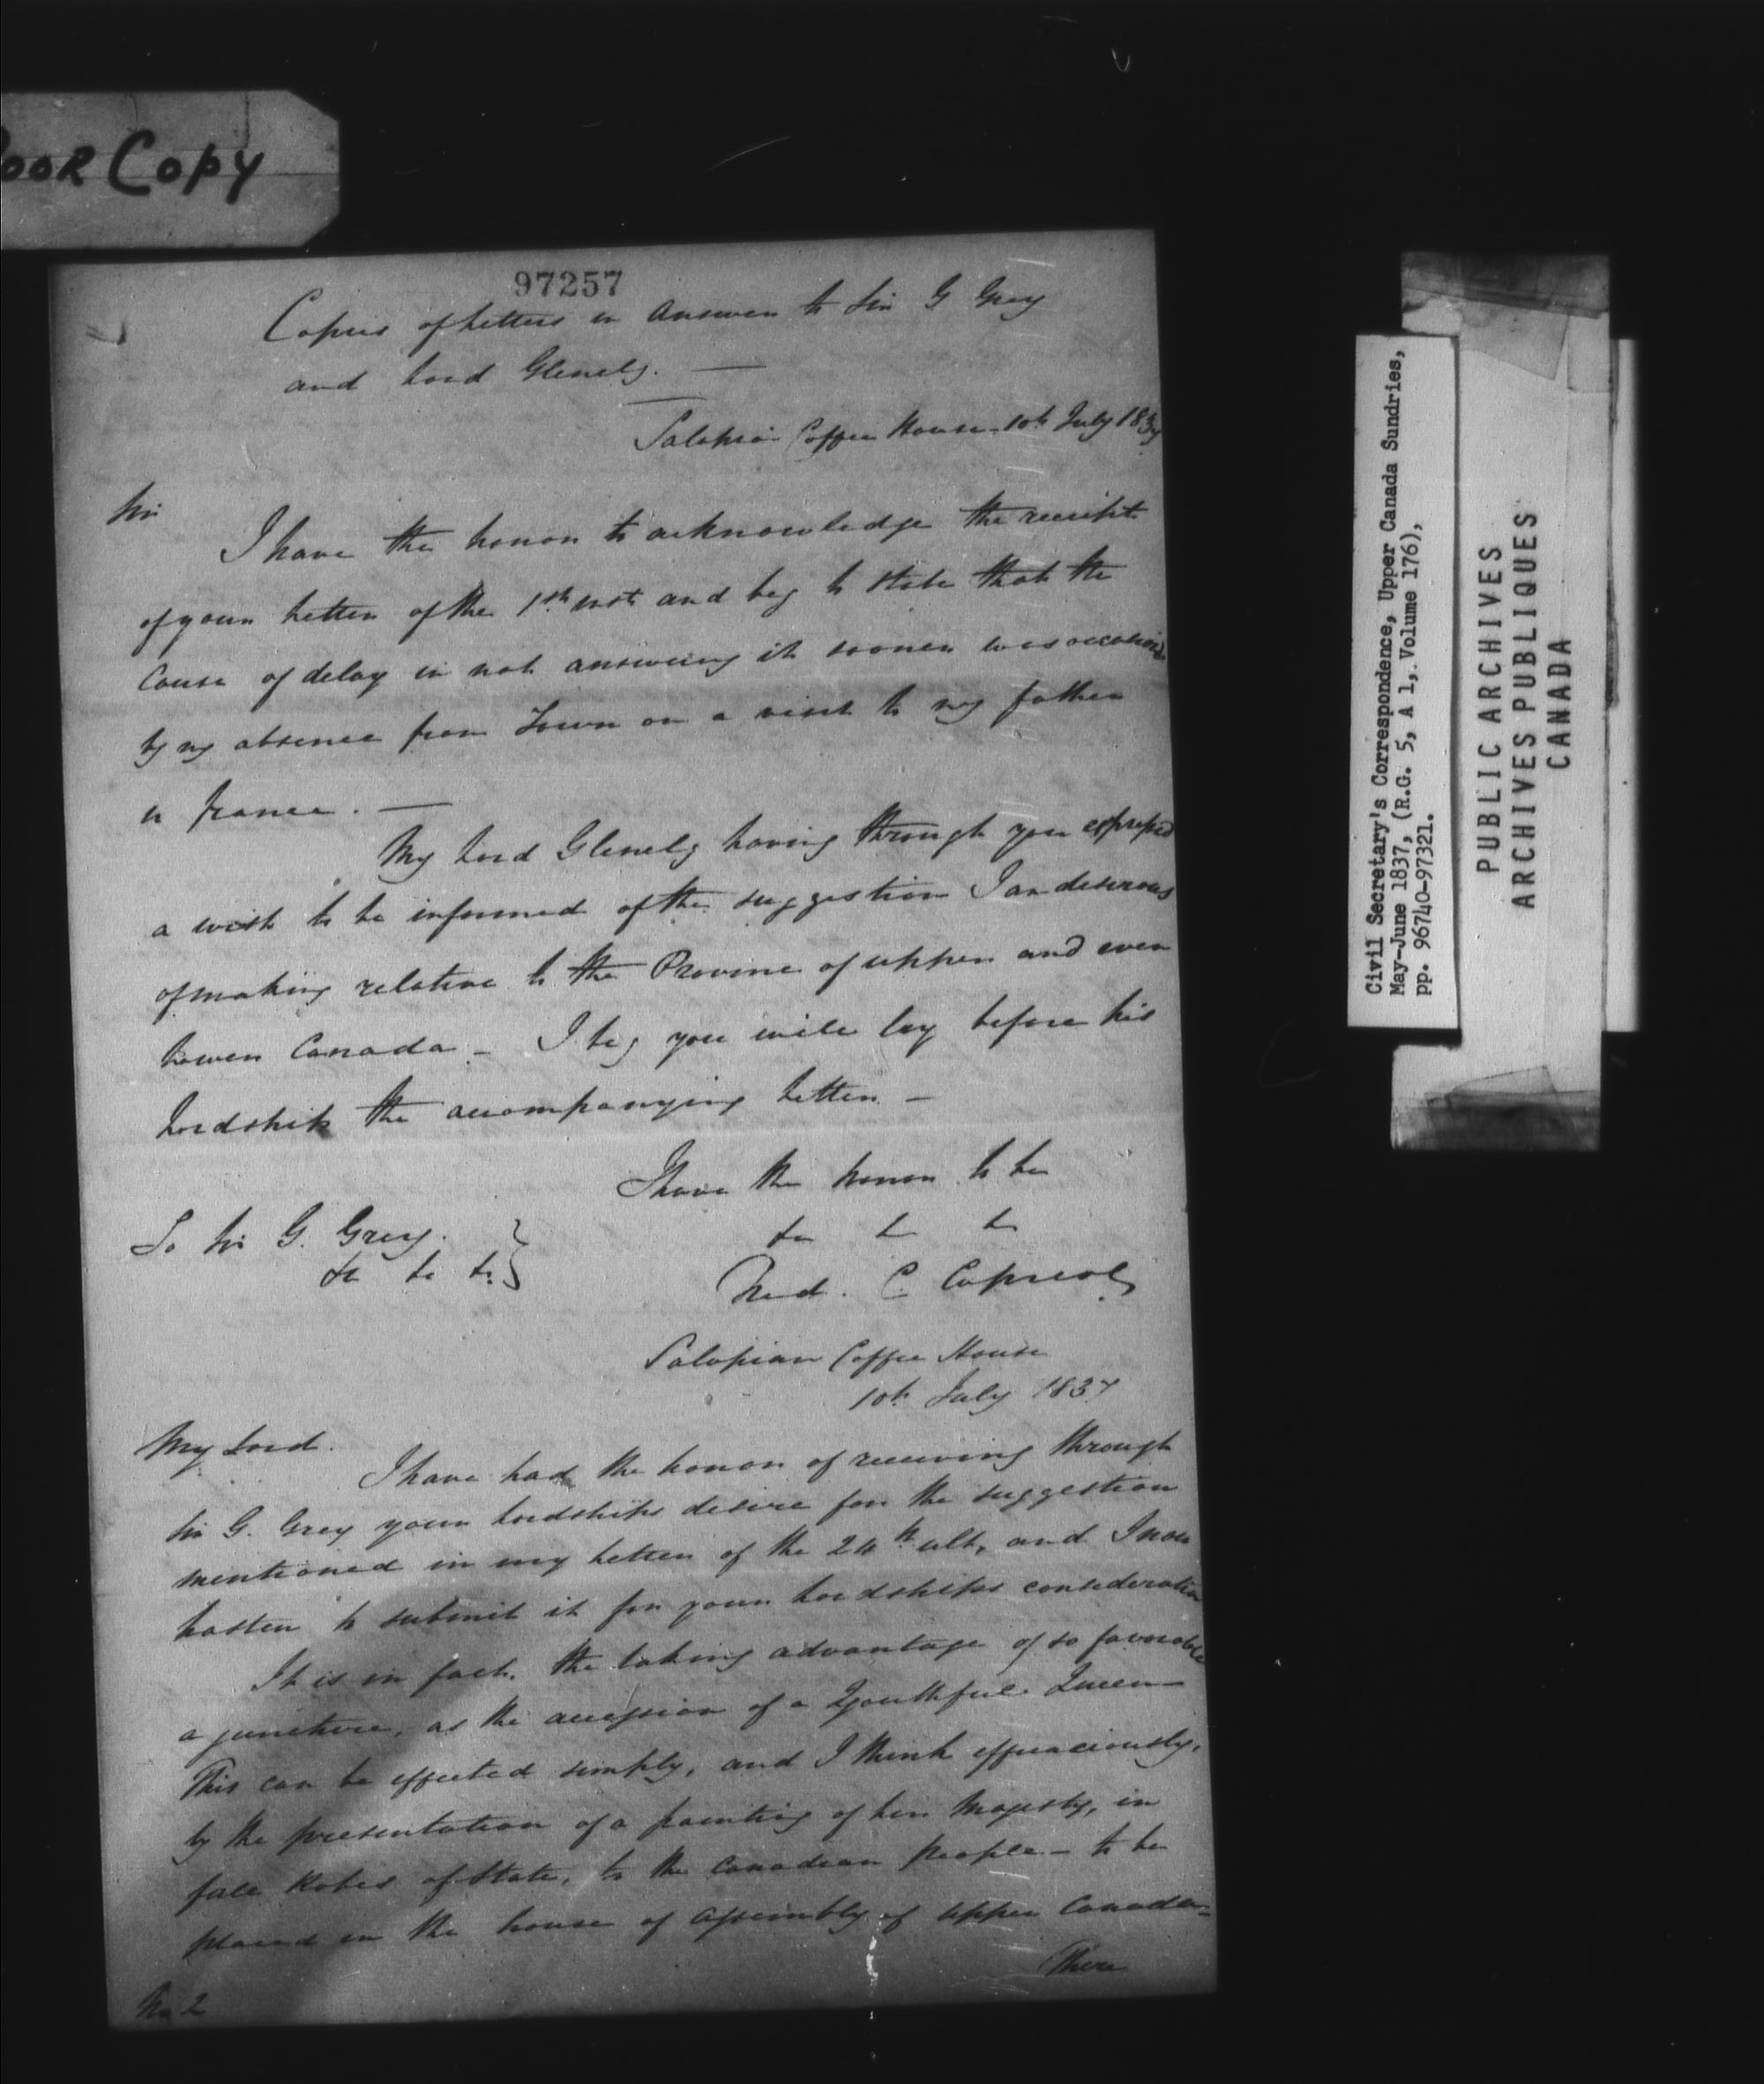 OOR COPY
97257
Copies of Letters in answer to Sir G Grey
and Lord Glenelg. —
Salopian Coffee House - 10th July 1837
Sir
I have the honor to acknowledge the receipt
of your Letter of the 1st inst and beg to state that the
Cause of delay in not answering it sooner was occasioned
by my absence from Town on a visit to my father
in france. —
My Lord Glenelg having through you expressed
a wish to be informed of the suggestion I am desirous
of making relative to the Province of upper and even
Lower Canada - I beg you will lay before his
Lordship the accompanying Letter -
I have the honor to be
&c &c &c
Fred. C. Capreol
To Sir G. Grey.
&c &c &c }
Salopian Coffee House
10th July 1837
My Lord.
I have had the honor of receiving through
Sir G. Grey your Lordships desire for the suggestion
mentioned in my Letter of the 24th ult, and I now
hasten to submit it for your Lordships consideration
It is in fact, the taking advantage of so favorable
a juncture, as the accession of a Youthful Queen -
This can be effected simply, and I think efficaciously,
by the presentation of a painting of her Majesty, in
full Robes of State, to the Canadian People - to be
placed in the house of Assembly of Upper Canada -
There
No 2
Civil Secretary's Correspondence, Upper Canada Sundries,
May-June 1837, (R.G. 5, A 1, Volume 176),
pp. 96740-97321.
PUBLIC ARCHIVES
ARCHIVES PUBLIQUES
CANADA